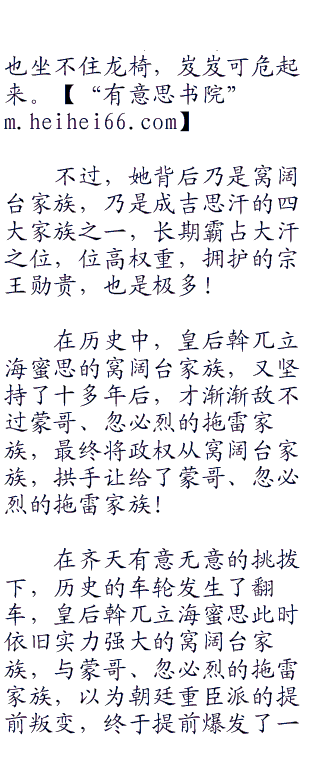 也坐不住龙椅，岌岌可危起
来。【 “有意思书院”
m.heihei66.com】
不过，她背后乃是窝阔
台家族，乃是成吉思汗的四
大家族之一，长期霸占大汗
之位，位高权重，拥护的宗
王勋贵，也是极多！
在历史中，皇后斡兀立
海蜜思的窝阔台家族，又坚
持了十多年后，才渐渐敌不
过蒙哥、忽必烈的拖雷家
族，最终将政权从窝阔台家
族，拱手让给了蒙哥、忽必
烈的拖雷家族！
在齐天有意无意的挑拨
下，历史的车轮发生了翻
车，皇后斡兀立海蜜思此时
依旧实力强大的窝阔台家
族，与蒙哥、忽必烈的拖雷
家族，以为朝廷重臣派的提
前叛变，终于提前爆发了一